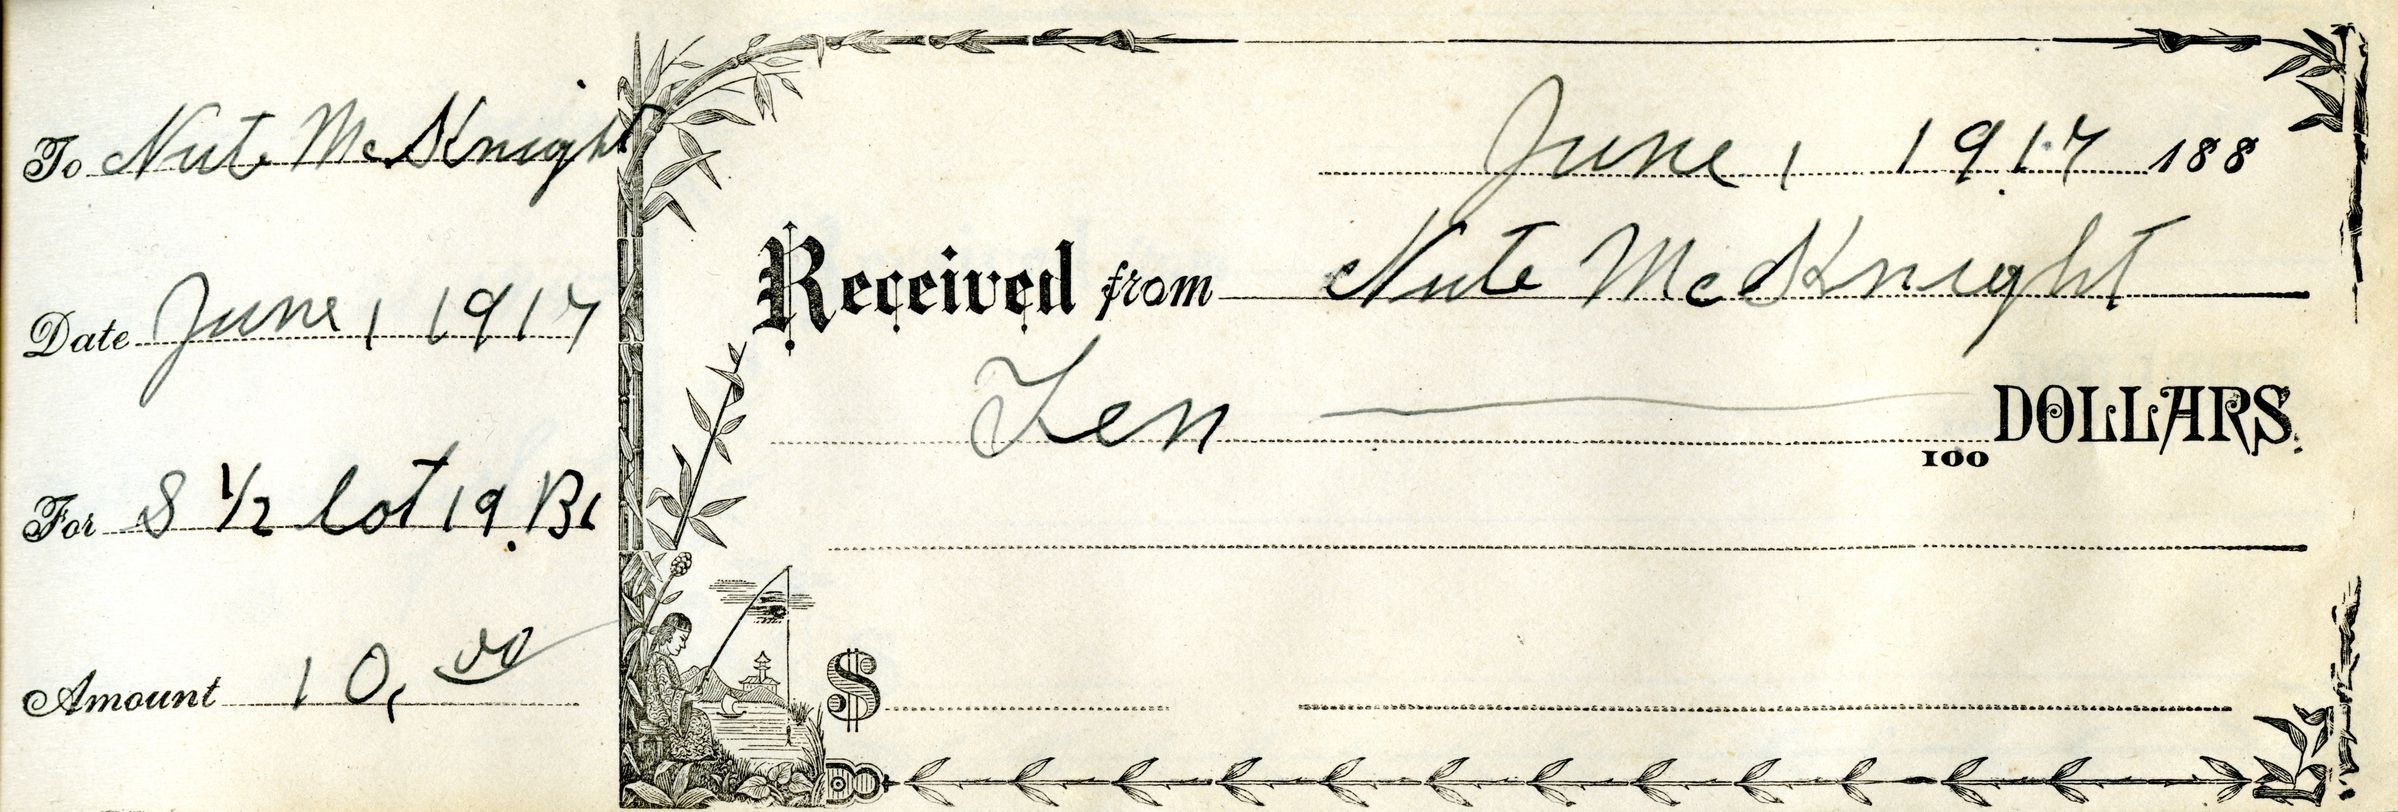 To Nute McKnight
Date June 1 1917
For S 1/2 lot 19. Bl
Amount 10.00
June 1 1917 188
Received from Nute McKnight
Ten — DOLLARS.
100
$